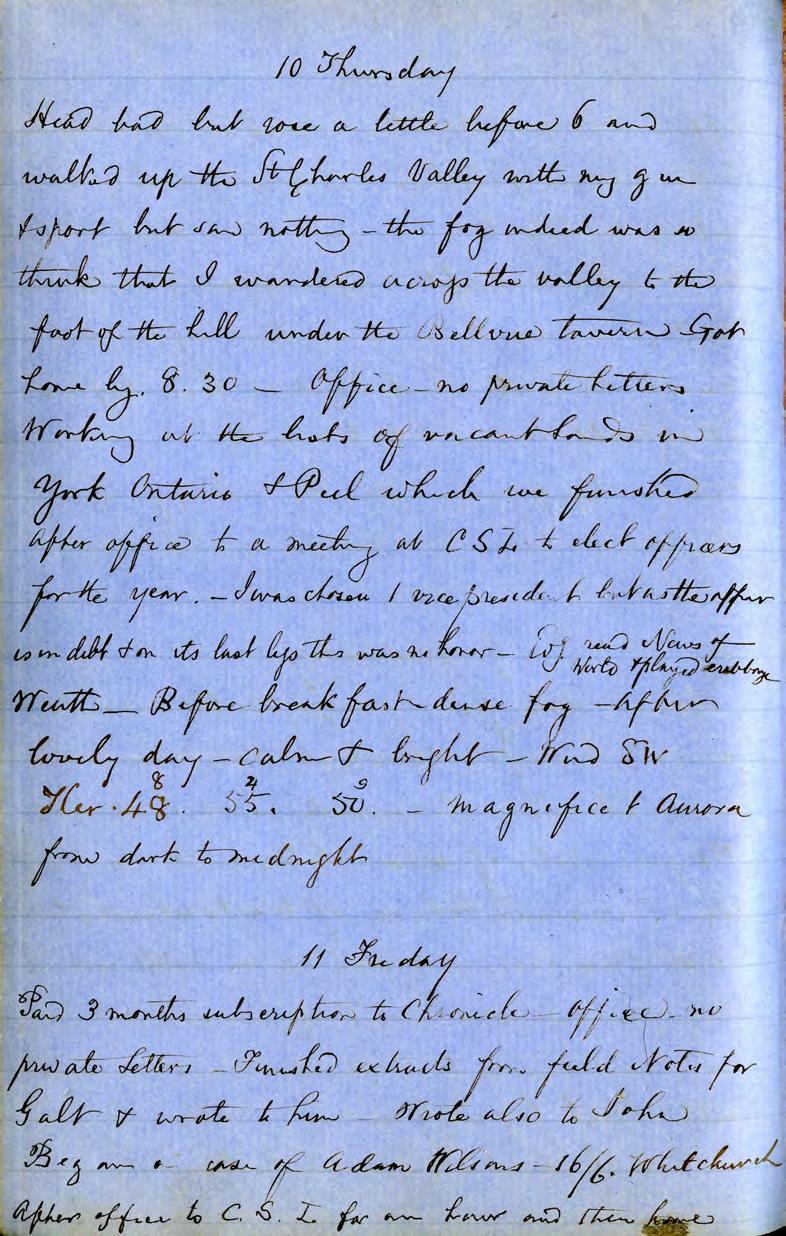 10 Thursday
Head bad but rose a little before 6 and
walked up the St Charles Valley with my gun
& sport but saw nothing - the fog indeed was so
thick that I wandered across the valley to the
foot of the hill under the Bellvue tavern Got
home by. 8.30 - Office - no private letters
Working at the lists of vacant lands in
York Ontario & Peel which we finished
After office to a meeting at C S I. to elect officers
for the year. - I was chosen 1 vice president but as the affair
is in debt & on its last legs this was no honor - Evg read News of
World & played cribbage
Weath - Before breakfast dense fog - After
lovely day - calm & bright - Wind SW
8 2 9
Ther. 48. 55. 50. - Magnificet Aurora
from dark to midnight
11 Friday
Paid 3 months subscription to Chronicle - Office - no
private letters - Finished extracts from field Notes for
Galt & wrote to him - Wrote also to John
Began a case of Adam Wilsons - 16/6. Whitchurch
After office to C. S. I. for an hour and then home